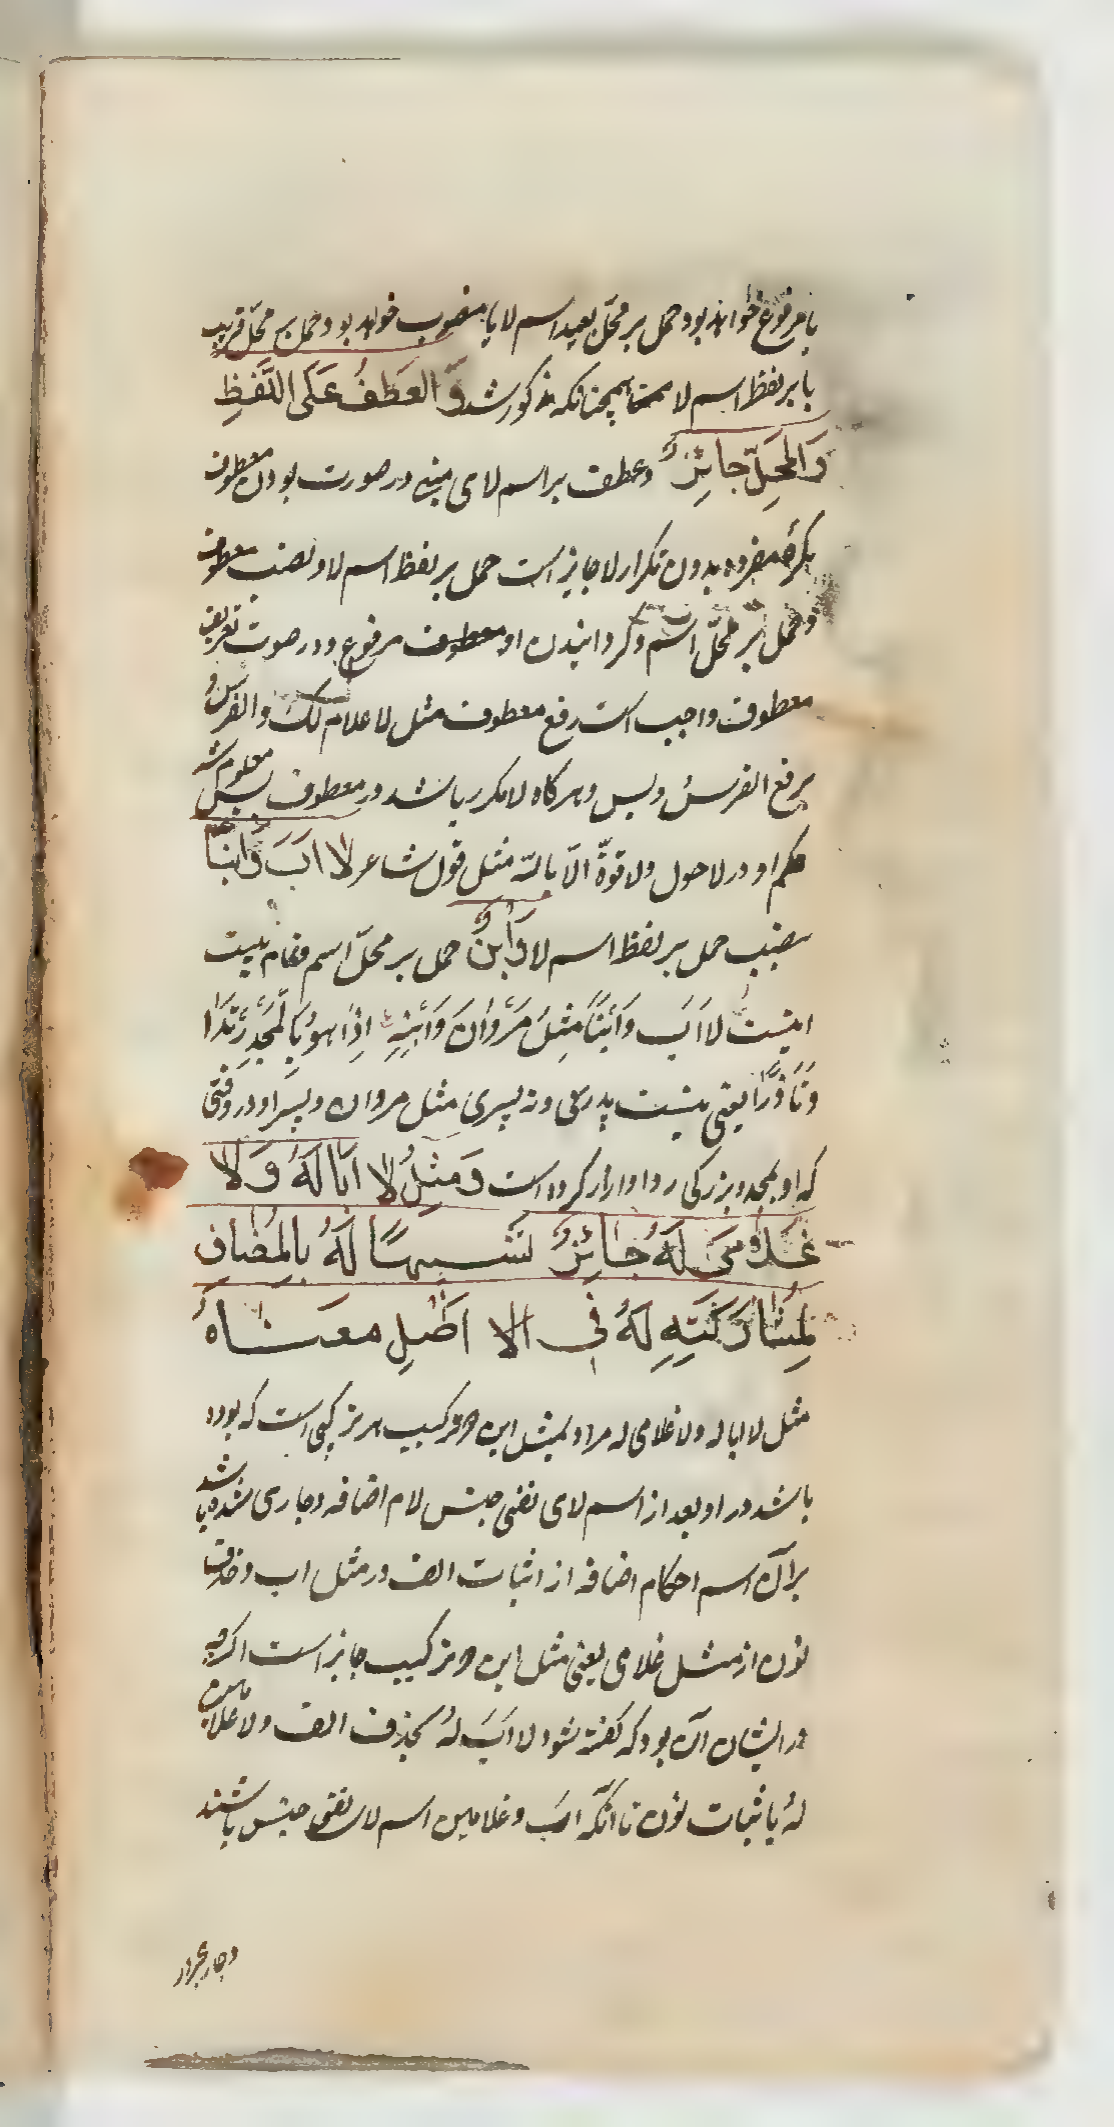 یا مرفوع خواهد بود حمل بر محلّ بعید اسم لا یا منصوب خواهد بود حمل بر محلّ قریب
یا بر لفظ اسم لا همچنانکه مذکور شد وَالعَطفُ عَلَی اللَّفظِ
وَالمَحَلِّ جائِزٌ وعطف بر اسم لای مبنی در صورت بودن معطوف
نکرهٔ مفرده بدون تکرار لا جایز است حمل بر لفظ اسم لا ونصب معطوف
وحمل بر محلّ اسم وگردانیدن او معطوف مرفوع ودر صورت تعریف
معطوف واجب است رفع معطوف مثل لا غلام لک والفرسُ
برفع الفرسُ وبس وهرکاه لا مکرر باشد در معطوف پس معلوم شد
حکم او در لا حول ولا قوّةَ الّا بالله مثل قول شاعر لا اَبَ وَابناً
بنصب حمل بر لفظ اسم لا وَابنٌ حمل بر محلّ اسم وتمام بیت
اینست لا اَبَ وَابْناً مِثلَ مَرْوانَ وَابْنِهِ اِذا هو بِالمَجْدِ ارْتَدَا
وَتَأَزَّرا یعنی نیست پدری ونه پسری مثل مروان وپسر او در وقتی
که او بمجد وبزرکی ردا وازار کرده است وَمِثلُ لا اَبا لَهُ وَلا
غُلامَی لَهُ جائِزٌ تشبیهاً لَهُ بِالمُضافِ
لِمُشارَکَتِهِ لَهُ فی اَصلِ مَعناهُ
مثل لا ابا له ولا غلامی له مراد بمثل این دو ترکیب هر ترکیبی است که بوده
باشد در او بعد از اسم لای نفی جنس لام اضافه وجاری شده باشد
بر آن اسم احکام اضافه از اثبات الف در مثل اب وحذف
نون از مثل غلامی یعنی مثل این دو ترکیب جایز است اکرچه
در ایشان آن بود که کفته شود لا اَبَ لهُ بحذف الف ولا غلامین
لهُ باثبات نون تا آنکه ابَ وغلامین اسم لای نفی جنس باشند
وجار مجرور